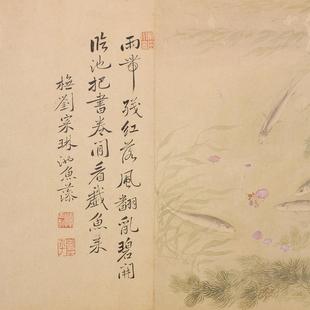 雨帶殘紅落風翻亂碧開
臨池把書卷閒看戲魚來
橅劉寀珠泖魚藻